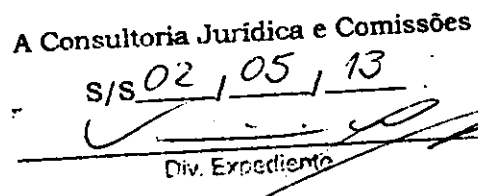 A Consultoria Jurídica e Comissões
S/S 02 / 05 / 13
Div. Expediente